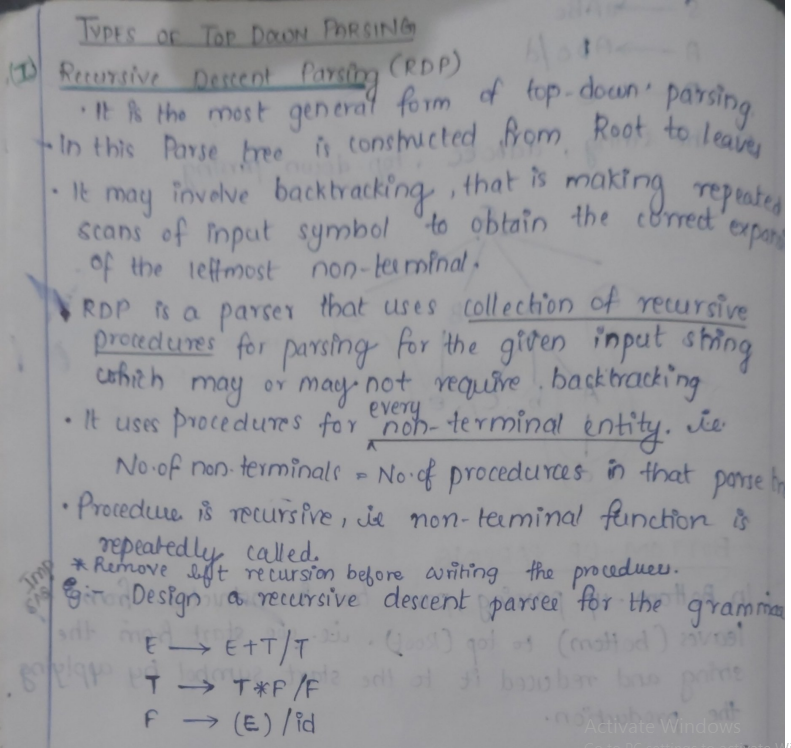 TYPES OF TOP DOWN PARSING
(I) Recursive Descent Parsing (RDP)
• It is the most general form of top-down parsing
- In this Parse tree is constructed from Root to leaves
• It may involve backtracking, that is making repeated
scans of input symbol to obtain the correct expan
of the leftmost non-terminal.
RDP is a parser that uses collection of recursive
procedures for parsing for the given input string
which may or may not require backtracking
• It uses procedures for every non-terminal entity. ie
No. of non-terminals = No. of procedures in that parse
• Procedure is recursive, ie non-terminal function is
repeatedly called.
Imp * Remove left recursion before writing the procedure.
eg:- Design a recursive descent parser for the gramma
E → E+T/T
T → T*F/F
F → (E)/id
Activate Windows